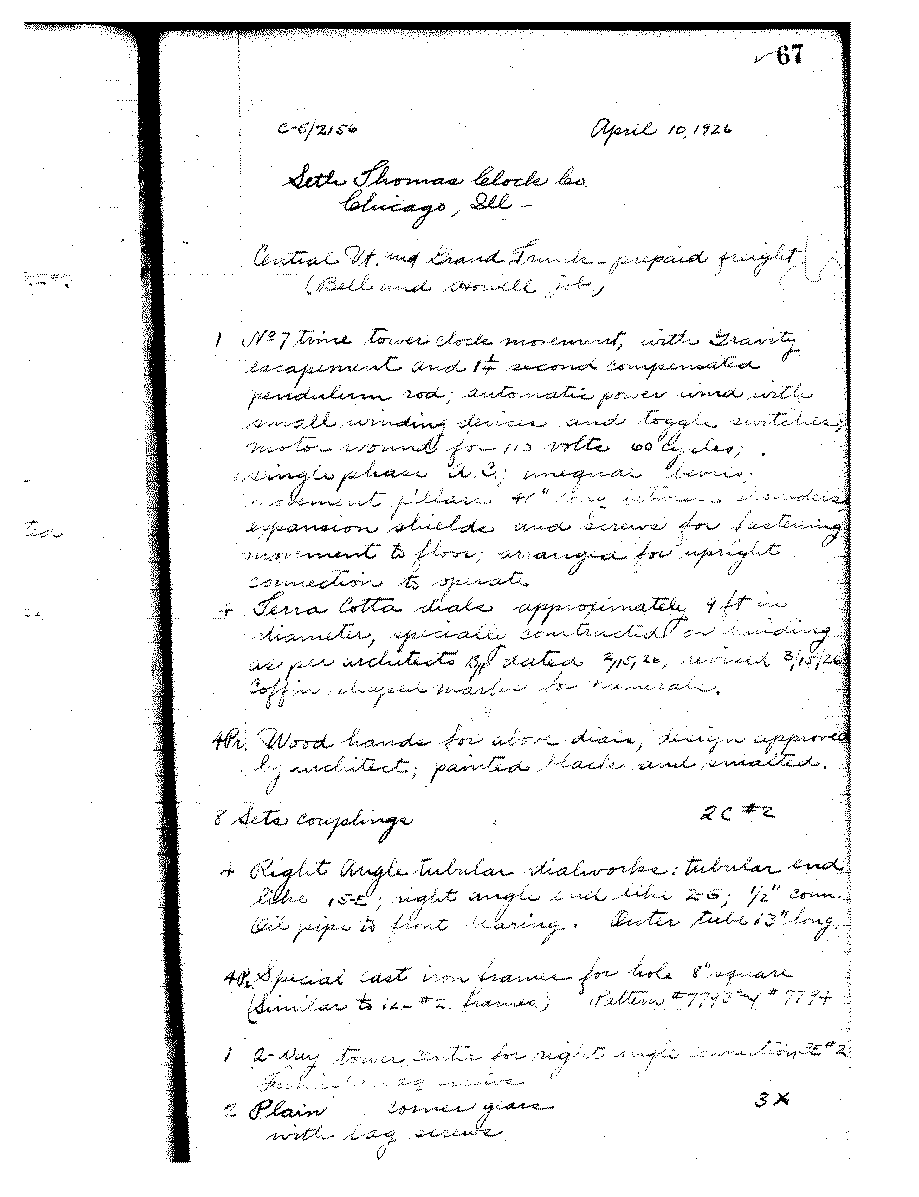 67
C-5/2156 April 10, 1926
Seth Thomas Clock Co.
Chicago, Ill -
Central Vt. and Grand Trunk - prepaid freight
(Bell and Howell job)
1 No 7 time tower clock movement, with Gravity
escapement and 1¼ second compensated
pendulum rod; automatic power wind with
small winding devices and toggle switches;
motor wound for 110 volts 60 Cycles;
single phase A.C.; unequal
movement pillars 41" long between shoulders
expansion shields and screws for fastening
movement to floor; arranged for upright
connection to operate
4 Terra Cotta dials approximately 9 ft in
diameter, specially constructed on building
as per architects B/P dated 2/15/26, revised 3/15/26
Coffin shaped marks for numerals.
4 Pr. Wood hands for above dials; design approved
by architect; painted black and smalted.
8 Sets couplings 2C #2
4 Right Angle tubular dialworks: tubular end
like 15-E; right angle end like 2G; 1/2" conn.
Oil pipe to front bearing. Outer tube 13" long
4 Pr. Special cast iron frames for hole 8" square
(Similar to #2 frames) Pattern #7793 and #7794
1 2-Way tower center for right angle connection #2
2 Plain corner gears 3X
with lag screws